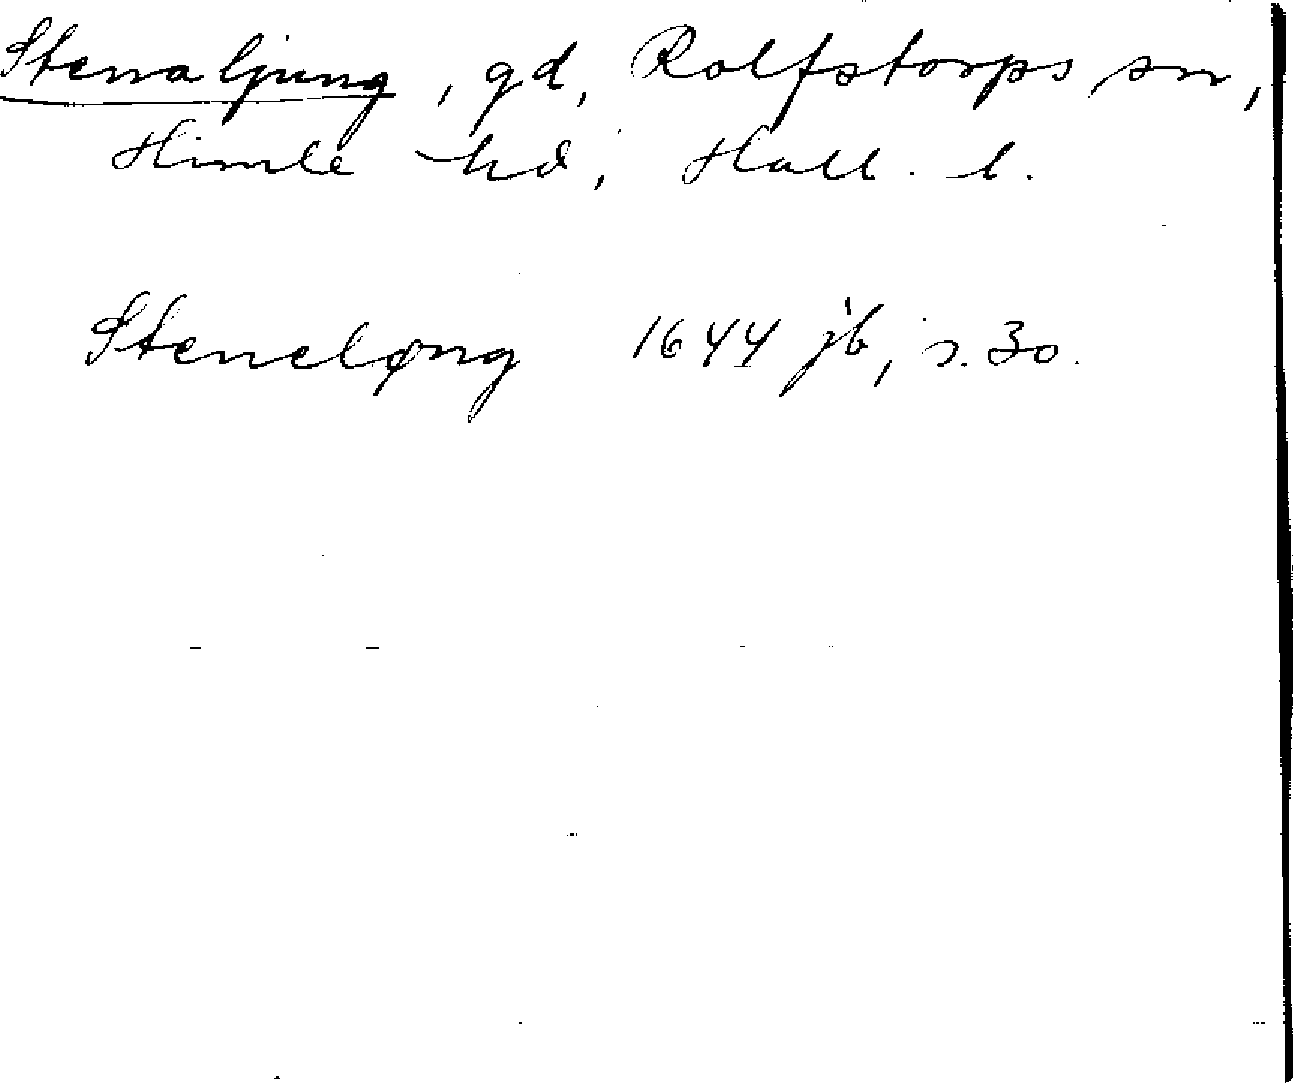 Stenaljung, gd, Rolfstorps sn,
Himle hd, Hall. l.
Steneløng 1644 jb, s. 30.